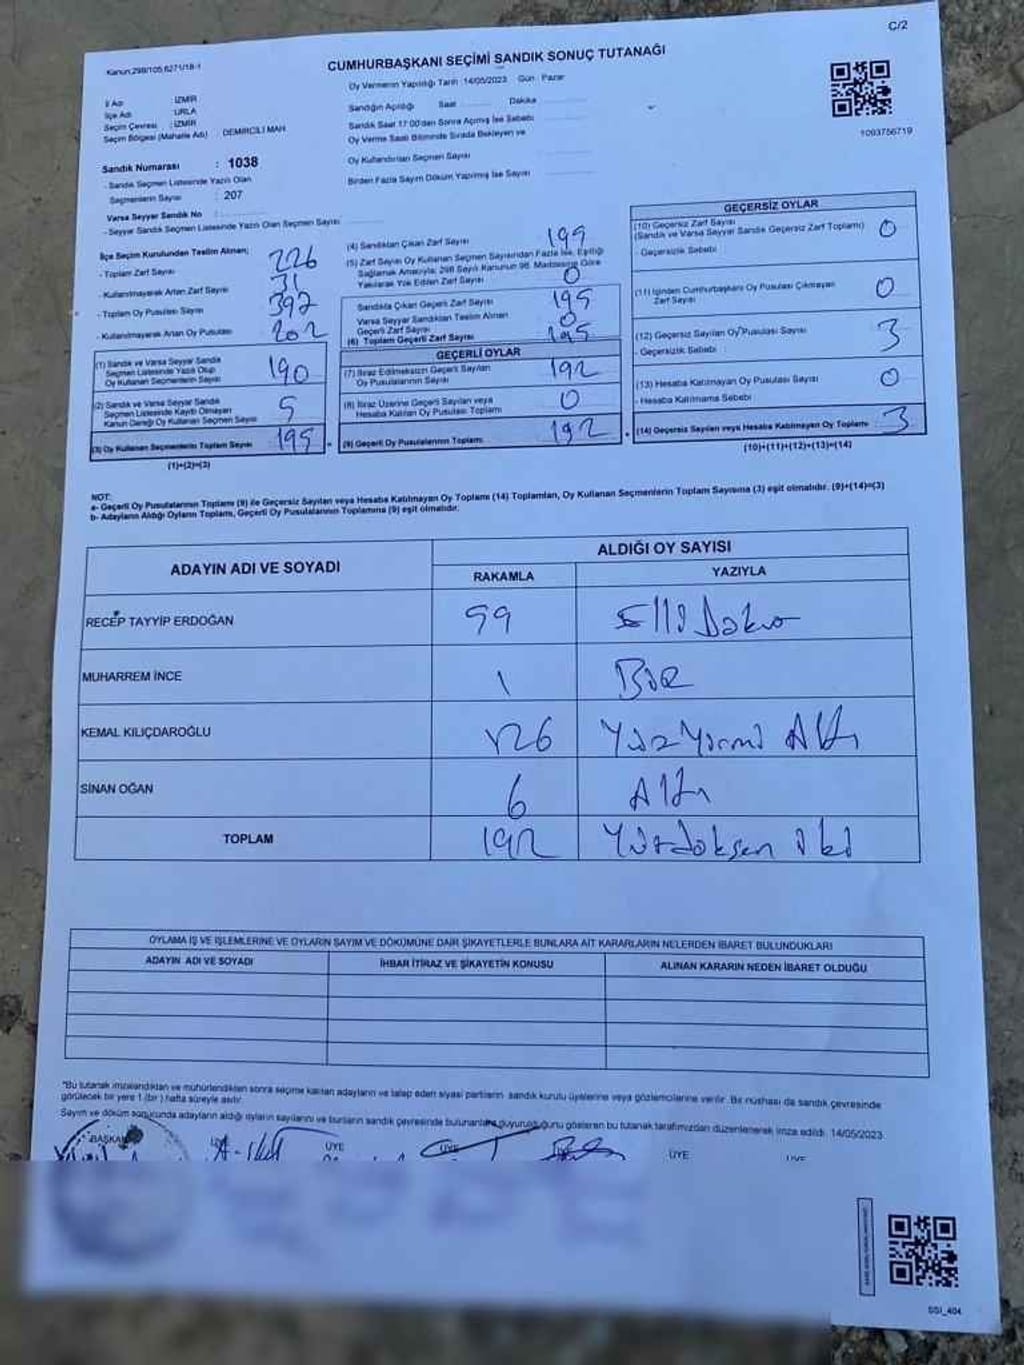 C/2
Kanun:298/105,6271/18-1
CUMHURBAŞKANI SEÇİMİ SANDIK SONUÇ TUTANAĞI
Oy Vermenin Yapıldığı Tarih :14/05/2023 Gün : Pazar
İl Adı : İZMİR
İlçe Adı : URLA
Seçim Çevresi : İZMİR
Seçim Bölgesi (Mahalle Adı) : DEMİRCİLİ MAH
Sandığın Açıldığı Saat Dakika
Sandık Saat 17:00'den Sonra Açılmış İse Sebebi
Oy Verme Saati Bitiminde Sırada Bekleyen ve
Oy Kullandırılan Seçmen Sayısı
Birden Fazla Sayım Döküm Yapılmış İse Sayısı
1093756719
Sandık Numarası : 1038
- Sandık Seçmen Listesinde Yazılı Olan
Seçmenlerin Sayısı : 207
Varsa Seyyar Sandık No :
- Seyyar Sandık Seçmen Listesinde Yazılı Olan Seçmen Sayısı
İlçe Seçim Kurulundan Teslim Alınan;
- Toplam Zarf Sayısı 226
- Kullanılmayarak Artan Zarf Sayısı 31
- Toplam Oy Pusulası Sayısı 397
- Kullanılmayarak Artan Oy Pusulası 202
(1) Sandık ve Varsa Seyyar Sandık
Seçmen Listesinde Yazılı Olup
Oy Kullanan Seçmenlerin Sayısı 190
(2) Sandık ve Varsa Seyyar Sandık
Seçmen Listesinde Kayıtlı Olmayan
Kanun Gereği Oy Kullanan Seçmen Sayısı 5
(3) Oy Kullanan Seçmenlerin Toplam Sayısı 195
(1)+(2)=(3)
(4) Sandıktan Çıkan Zarf Sayısı 195
(5) Zarf Sayısı Oy Kullanan Seçmen Sayısından Fazla İse, Eşitliği
Sağlamak Amacıyla, 298 Sayılı Kanunun 98. Maddesine Göre
Yakılarak Yok Edilen Zarf Sayısı 0
Sandıkta Çıkan Geçerli Zarf Sayısı 195
Varsa Seyyar Sandıktan Teslim Alınan
Geçerli Zarf Sayısı 0
(6) Toplam Geçerli Zarf Sayısı 195
GEÇERLİ OYLAR
(7) İtiraz Edilmeksizin Geçerli Sayılan
Oy Pusulalarının Sayısı 192
(8) İtiraz Üzerine Geçerli Sayılan veya
Hesaba Katılan Oy Pusulası Toplamı 0
(9) Geçerli Oy Pusulalarının Toplamı 192
GEÇERSİZ OYLAR
(10) Geçersiz Zarf Sayısı
(Sandık ve Varsa Seyyar Sandık Geçersiz Zarf Toplamı) 0
- Geçersizlik Sebebi
(11) İçinden Cumhurbaşkanı Oy Pusulası Çıkmayan
Zarf Sayısı 0
(12) Geçersiz Sayılan Oy Pusulası Sayısı 3
- Geçersizlik Sebebi :
(13) Hesaba Katılmayan Oy Pusulası Sayısı 0
- Hesaba Katılmama Sebebi
(14) Geçersiz Sayılan veya Hesaba Katılmayan Oy Toplamı 3
(10)+(11)+(12)+(13)=(14)
NOT:
a- Geçerli Oy Pusulalarının Toplamı (9) ile Geçersiz Sayılan veya Hesaba Katılmayan Oy Toplamı (14) Toplamları, Oy Kullanan Seçmenlerin Toplam Sayısına (3) eşit olmalıdır. (9)+(14)=(3)
b- Adayların Aldığı Oyların Toplamı, Geçerli Oy Pusulalarının Toplamına (9) eşit olmalıdır.
ADAYIN ADI VE SOYADI
ALDIĞI OY SAYISI
RAKAMLA YAZIYLA
RECEP TAYYİP ERDOĞAN 59 Elli Dokuz
MUHARREM İNCE 1 BİR
KEMAL KILIÇDAROĞLU 126 Yüz Yirmi Altı
SİNAN OĞAN 6 Altı
TOPLAM 192 Yüzdoksen iki
OYLAMA İŞ VE İŞLEMLERİNE VE OYLARIN SAYIM VE DÖKÜMÜNE DAİR ŞİKAYETLERLE BUNLARA AİT KARARLARIN NELERDEN İBARET BULUNDUKLARI
ADAYIN ADI VE SOYADI İHBAR İTİRAZ VE ŞİKAYETİN KONUSU ALINAN KARARIN NEDEN İBARET OLDUĞU
*Bu tutanak imzalandıktan ve mühürlendikten sonra seçime katılan adayların ve talep eden siyasi partilerin sandık kurulu üyelerine veya gözlemcilerine verilir. Bir nüshası da sandık çevresinde
görülecek bir yere 1 (bir) hafta süreyle asılır.
Sayım ve döküm sonucunda adayların aldığı oyların sayılarını ve bunların sandık çevresinde bulunanlara duyurulduğunu gösteren bu tutanak tarafımızdan düzenlenerek imza edildi. 14/05/2023
BAŞKAN ÜYE ÜYE ÜYE ÜYE ÜYE ÜYE
SSİ_404